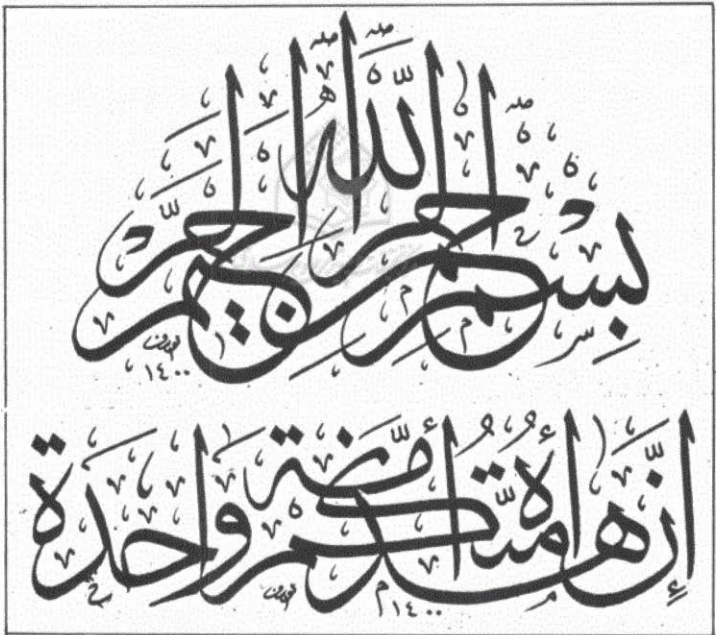 بسم الله الرحمن الرحيم
١٤٠٠
إنّ هذه أمّتكم أمّة واحدة
١٤٠٠